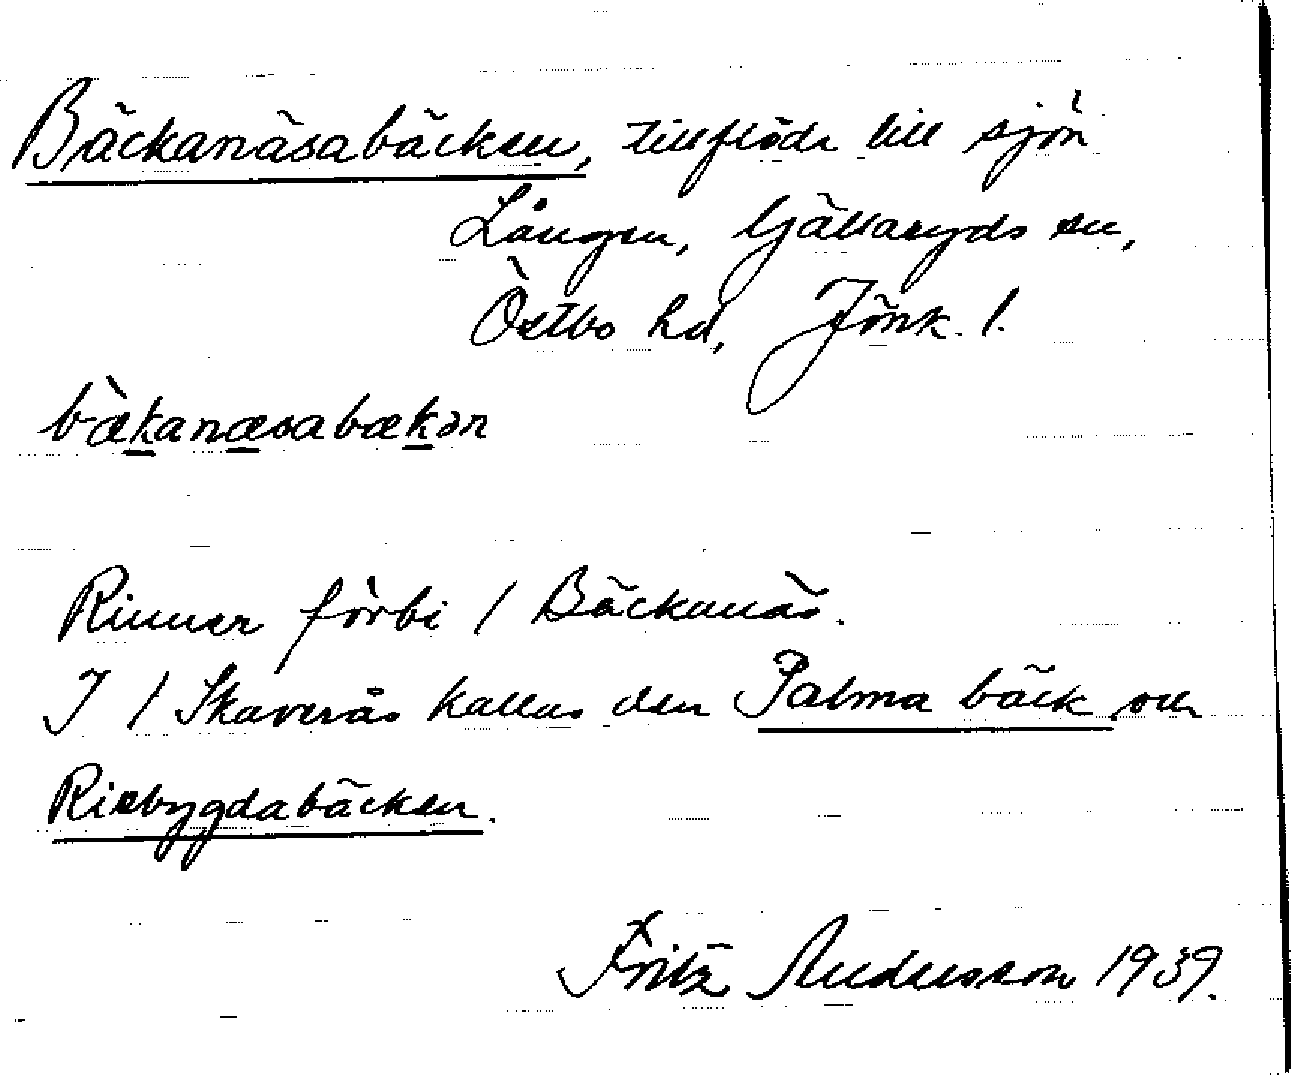 Bäckanäsabäcken, tillflöde till sjön
Lången, Gällaryds sn,
Östbo hd, Jönk. l.
bæ̀kanæsabækən
Rinner förbi / Bäckanäs.
I / Skaverås kallas den Palma bäck och
Risbygdabäcken.
Fritz Andersson 1939.